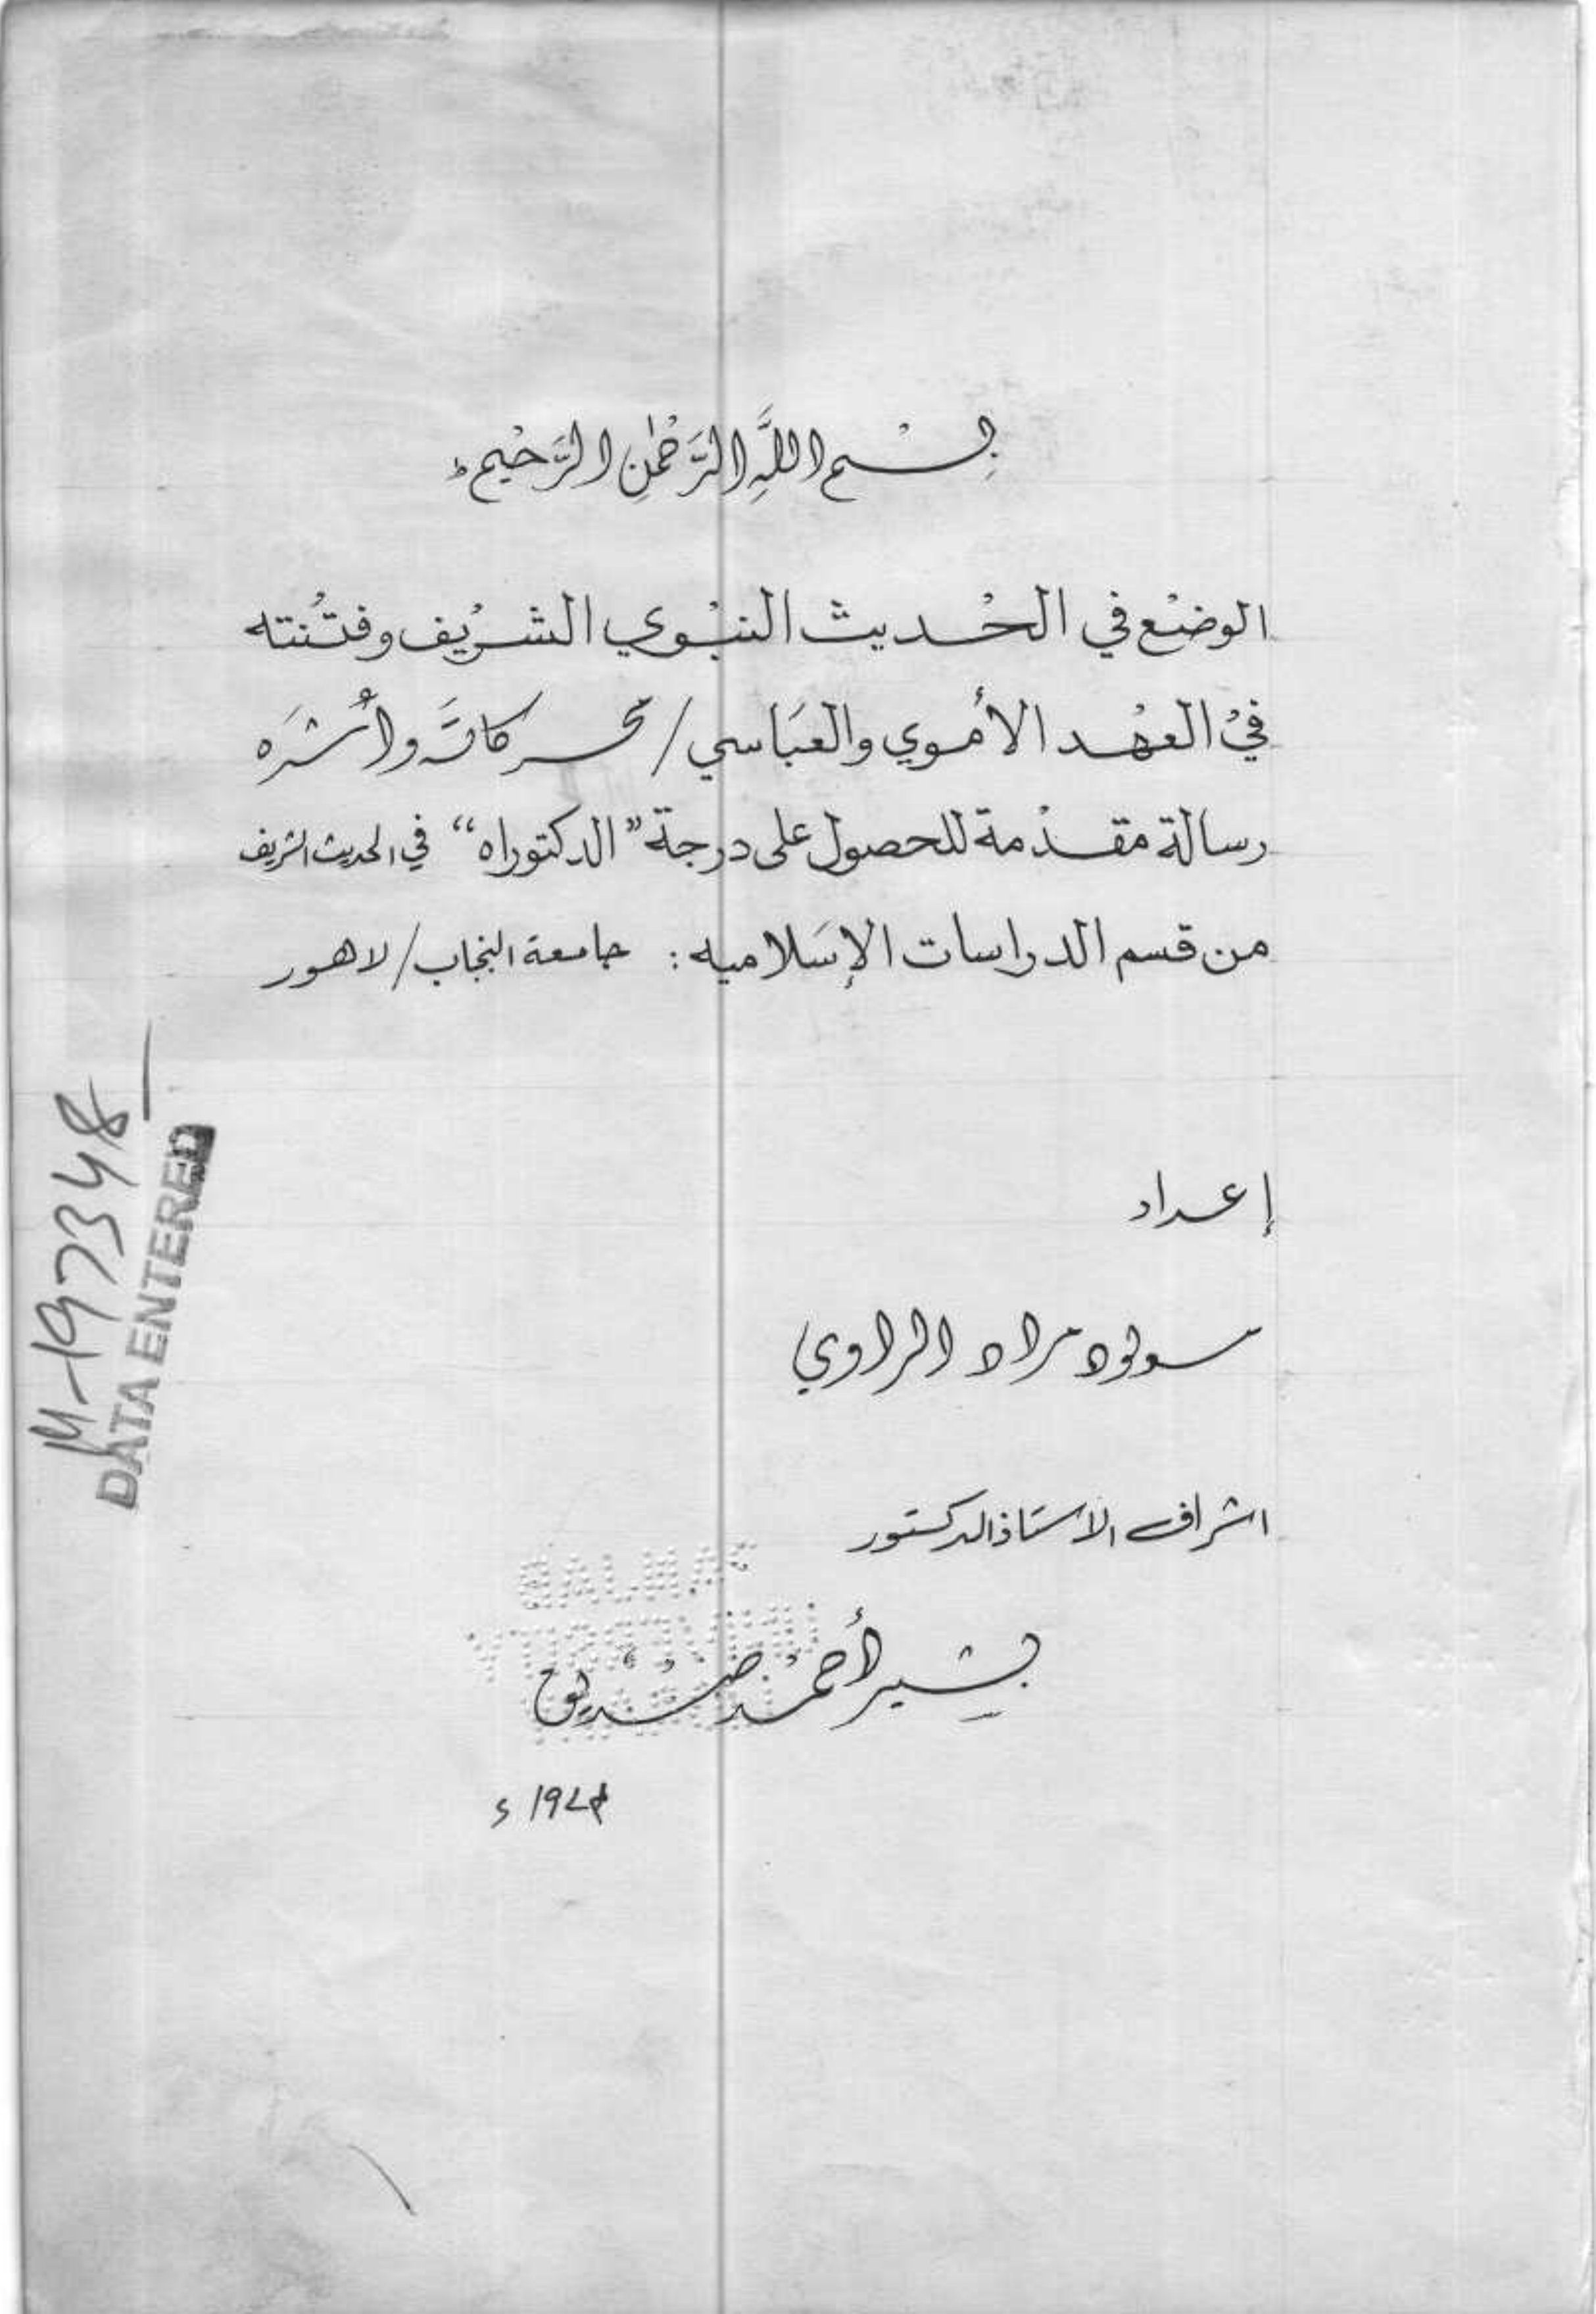 بِسْمِ اللَّهِ الرَّحْمٰنِ الرَّحِيْمِ ط
الوضْع في الحْديث النبْوي الشريْف وفتْنته
فيْ العهْد الأموي والعَبَاسي / محركاتَه وأُثرَه
رسالة مقدْمة للحصول على درجة "الدكتوراه" في الحديث الشريف
من قسم الدراسات الإسَلاميه : جامعة البنجاب / لاهور
إعداد
مولود مراد الراوي
اشراف الاستاذ الدكتور
بشير أحمد صديق
M-197348
DATA ENTERED
PUNJAB
UNIVERSITY